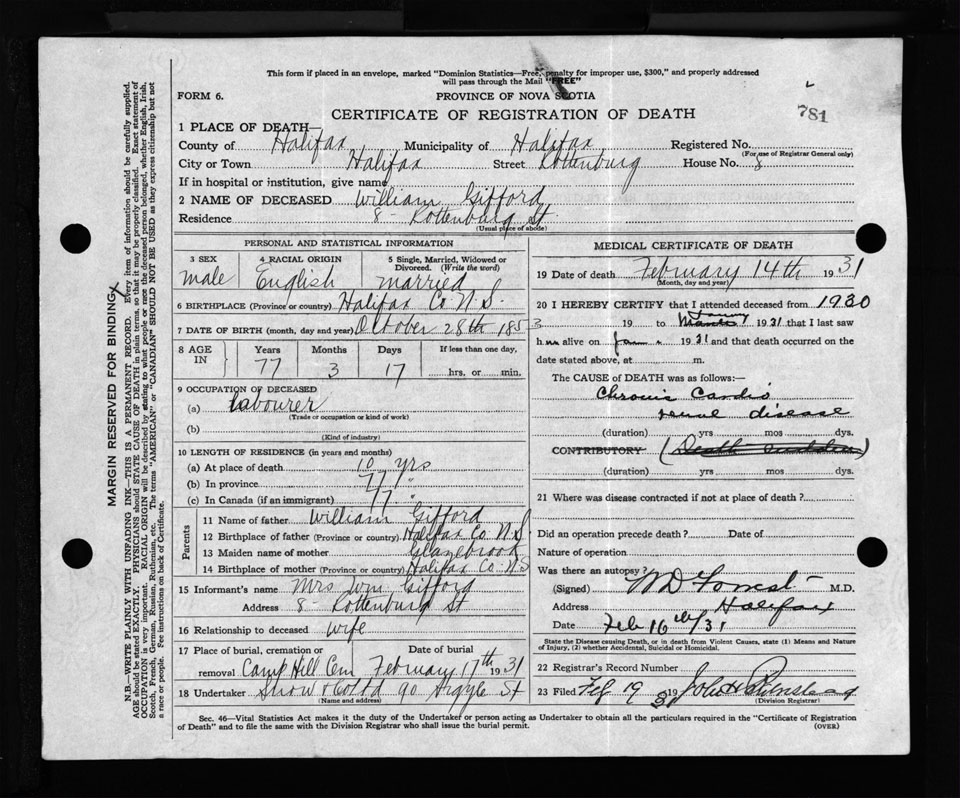 This form if placed in an envelope, marked "Dominion Statistics—Free, penalty for improper use, $300," and properly addressed
will pass through the Mail "FREE"
FORM 6.
PROVINCE OF NOVA SCOTIA
CERTIFICATE OF REGISTRATION OF DEATH
781
1 PLACE OF DEATH—
County of Halifax Municipality of Halifax Registered No.
(For use of Registrar General only)
City or Town Halifax Street Rottenburg House No. 8
If in hospital or institution, give name
2 NAME OF DECEASED William Gifford
Residence 8 - Rottenburg St
(Usual place of abode)
PERSONAL AND STATISTICAL INFORMATION
3 SEX 4 RACIAL ORIGIN 5 Single, Married, Widowed or
Divorced. (Write the word)
male English married
6 BIRTHPLACE (Province or country) Halifax Co N.S.
7 DATE OF BIRTH (month, day and year) October 28th 1853
8 AGE IN Years Months Days If less than one day,
77 3 17 hrs. or min.
9 OCCUPATION OF DECEASED
(a) labourer
(Trade or occupation or kind of work)
(b)
(Kind of industry)
10 LENGTH OF RESIDENCE (in years and months)
(a) At place of death 10 yrs
(b) In province 77 "
(c) In Canada (if an immigrant) 77 "
Parents
11 Name of father William Gifford
12 Birthplace of father (Province or country) Halifax Co N.S
13 Maiden name of mother Glazebrook
14 Birthplace of mother (Province or country) Halifax Co. N.S
15 Informant's name Mrs Wm Gifford
Address 8 - Rottenburg St
16 Relationship to deceased wife
17 Place of burial, cremation or Date of burial
removal Camp Hill Cem February 17th 1931
18 Undertaker Snow & Co Ltd 90 Argyle St
(Name and address)
MEDICAL CERTIFICATE OF DEATH
19 Date of death February 14th 1931
(Month, day and year)
20 I HEREBY CERTIFY that I attended deceased from 1930
19 to 1931 that I last saw
h alive on 1931 and that death occurred on the
date stated above, at m.
The CAUSE of DEATH was as follows:—
Chronic Cardio
renal disease
(duration) yrs mos dys.
CONTRIBUTORY (Death sudden)
(duration) yrs mos dys.
21 Where was disease contracted if not at place of death?
Did an operation precede death? Date of
Nature of operation
Was there an autopsy?
(Signed) WD Forrest M.D.
Address Halifax
Date Feb 16th/31
State the Disease causing Death, or in death from Violent Causes, state (1) Means and Nature
of Injury, (2) whether Accidental, Suicidal or Homicidal.
22 Registrar's Record Number
23 Filed Feb 19 1931 John H
(Division Registrar)
Sec. 46—Vital Statistics Act makes it the duty of the Undertaker or person acting as Undertaker to obtain all the particulars required in the "Certificate of Registration
of Death" and to file the same with the Division Registrar who shall issue the burial permit.
(OVER)
MARGIN RESERVED FOR BINDING
N.B.—WRITE PLAINLY WITH UNFADING INK—THIS IS A PERMANENT RECORD. Every item of information should be carefully supplied.
AGE should be stated EXACTLY. PHYSICIANS should STATE CAUSE OF DEATH in plain terms, so that it may be properly classified. Exact statement of
OCCUPATION is very important. RACIAL ORIGIN will be described by stating to what people or race the deceased person belonged, whether English, Irish,
Scotch, French, German, Russian, Ruthenian, etc. The terms "AMERICAN" or "CANADIAN" SHOULD NOT BE USED as they express citizenship but not
a race or people. Fee instructions on back of Certificate.